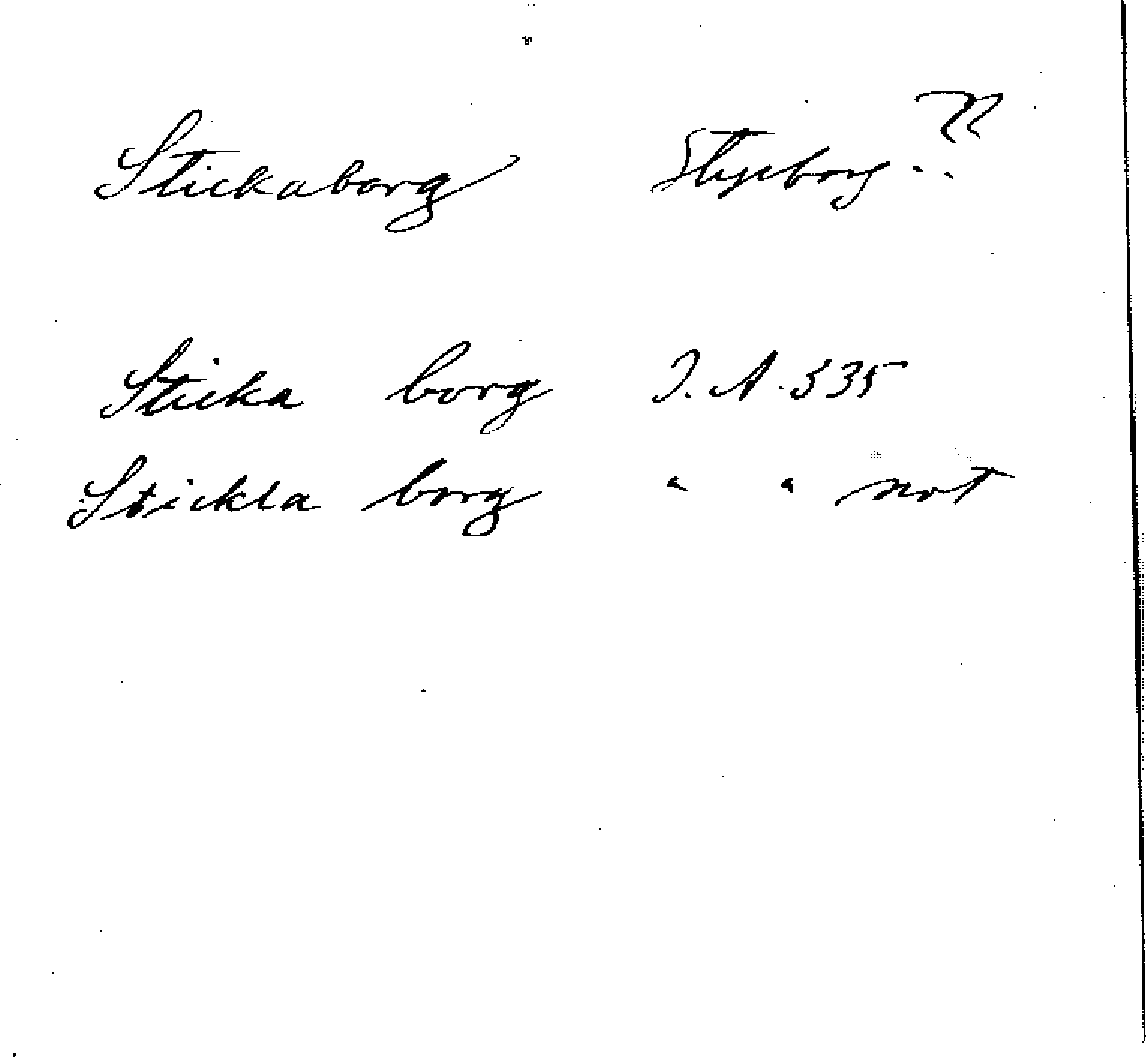 Stickaborg Stygeborg ??
Sticka borg J. A. 535
Stickla borg " " not